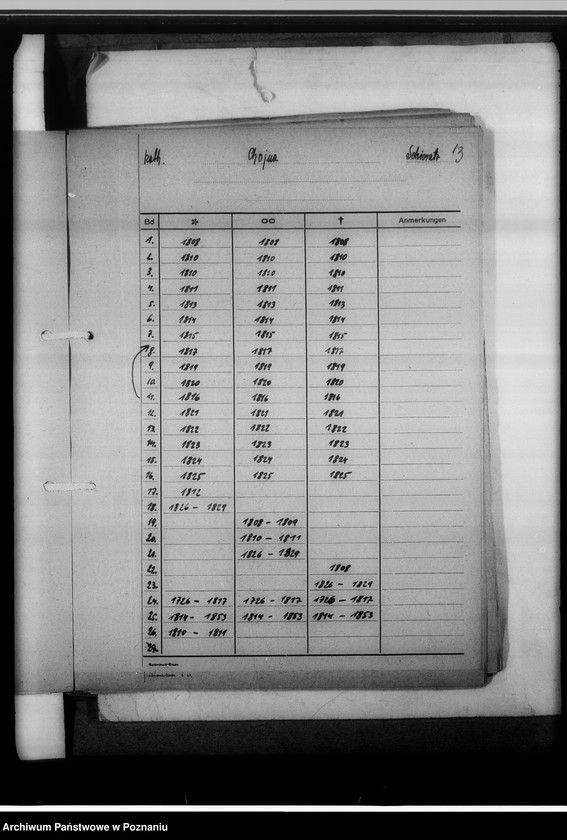 kath. Chojne Schieratz 13
Bd * oo † Anmerkungen
1. 1808 1808 1808
2. 1810 1810 1810
3. 1810 1810 1810
4. 1811 1811 1811
5. 1813 1813 1813
6. 1814 1814 1814
7. 1815 1815 1815
8. 1817 1817 1817
9. 1819 1819 1819
10. 1820 1820 1820
11. 1816 1816 1816
12. 1821 1821 1821
13. 1822 1822 1822
14. 1823 1823 1823
15. 1824 1824 1824
16. 1825 1825 1825
17. 1812
18. 1826 - 1829
19. 1808 - 1809
20. 1810 - 1811
21. 1826 - 1829
22. 1808
23. 1826 - 1829
24. 1726 - 1817 1726 - 1817 1726 - 1817
25. 1814 - 1853 1814 - 1853 1814 - 1853
26. 1810 - 1811
27.
Archiwum Państwowe w Poznaniu